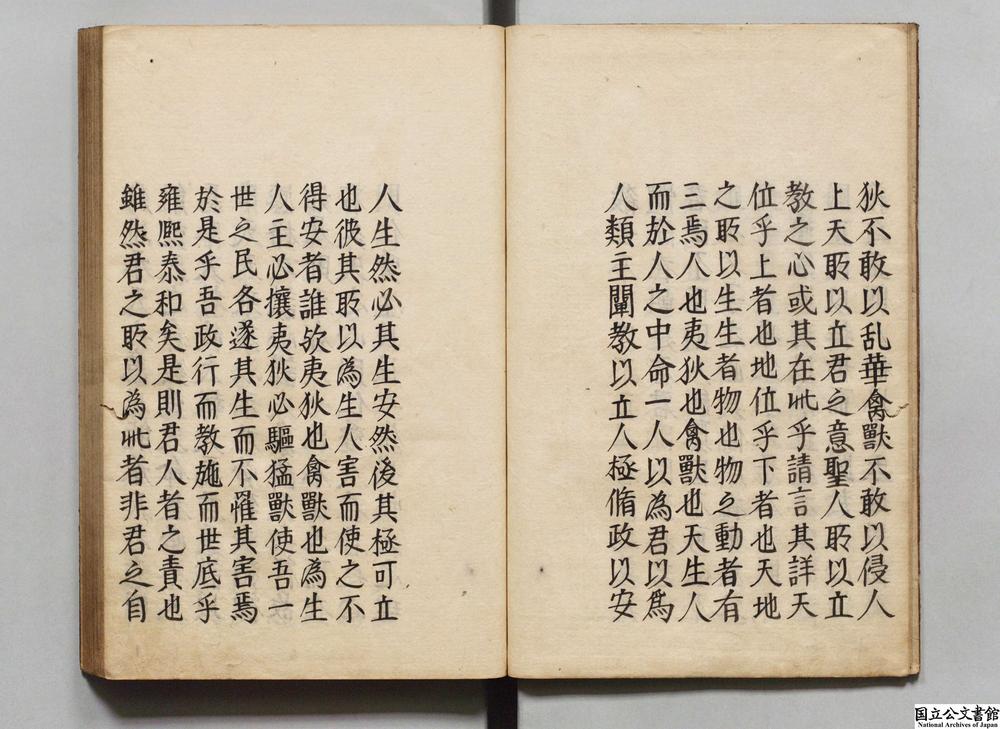 狄不敢以乱華禽獸不敢以侵人
上天所以立君之意聖人所以立
教之心或其在此乎請言其詳天
位乎上者也地位乎下者也天地
之所以生生者物也物之動者有
三焉人也夷狄也禽獸也天生人
而於人之中命一人以為君以為
人類主闡教以立人極脩政以安
人生然必其生安然後其極可立
也彼其所以為生人害而使之不
得安者誰欤夷狄也禽獸也為生
人主必攘夷狄必驅猛獸使吾一
世之民各遂其生而不罹其害焉
於是乎吾政行而教施而世底乎
雍熈泰和矣是則君人者之責也
雖然君之所以為此者非君之自
国立公文書館
National Archives of Japan